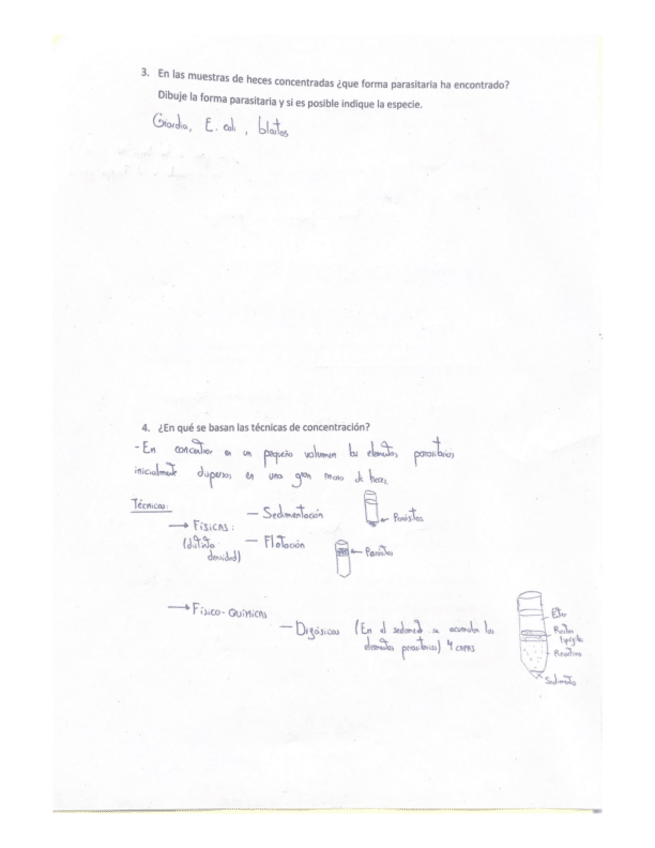 3. En las muestras de heces concentradas ¿que forma parasitaria ha encontrado?
Dibuje la forma parasitaria y si es posible indique la especie.
Giardia, E. coli,
4. ¿En qué se basan las técnicas de concentración?
- En concentrar en un pequeño volumen los elementos parasitarios
inicialmente dispersos en una gran masa de heces.
Técnicas:
→ FÍSICAS:
(distinta
densidad)
— Sedimentación
← Parásitos
— Flotación
← Parásitos
→ Físico-Químicas
— Difásicas (En el sedimento se acumulan los
elementos parasitarios) 4 capas
Eter
Restos
Reactivo
Sedimento